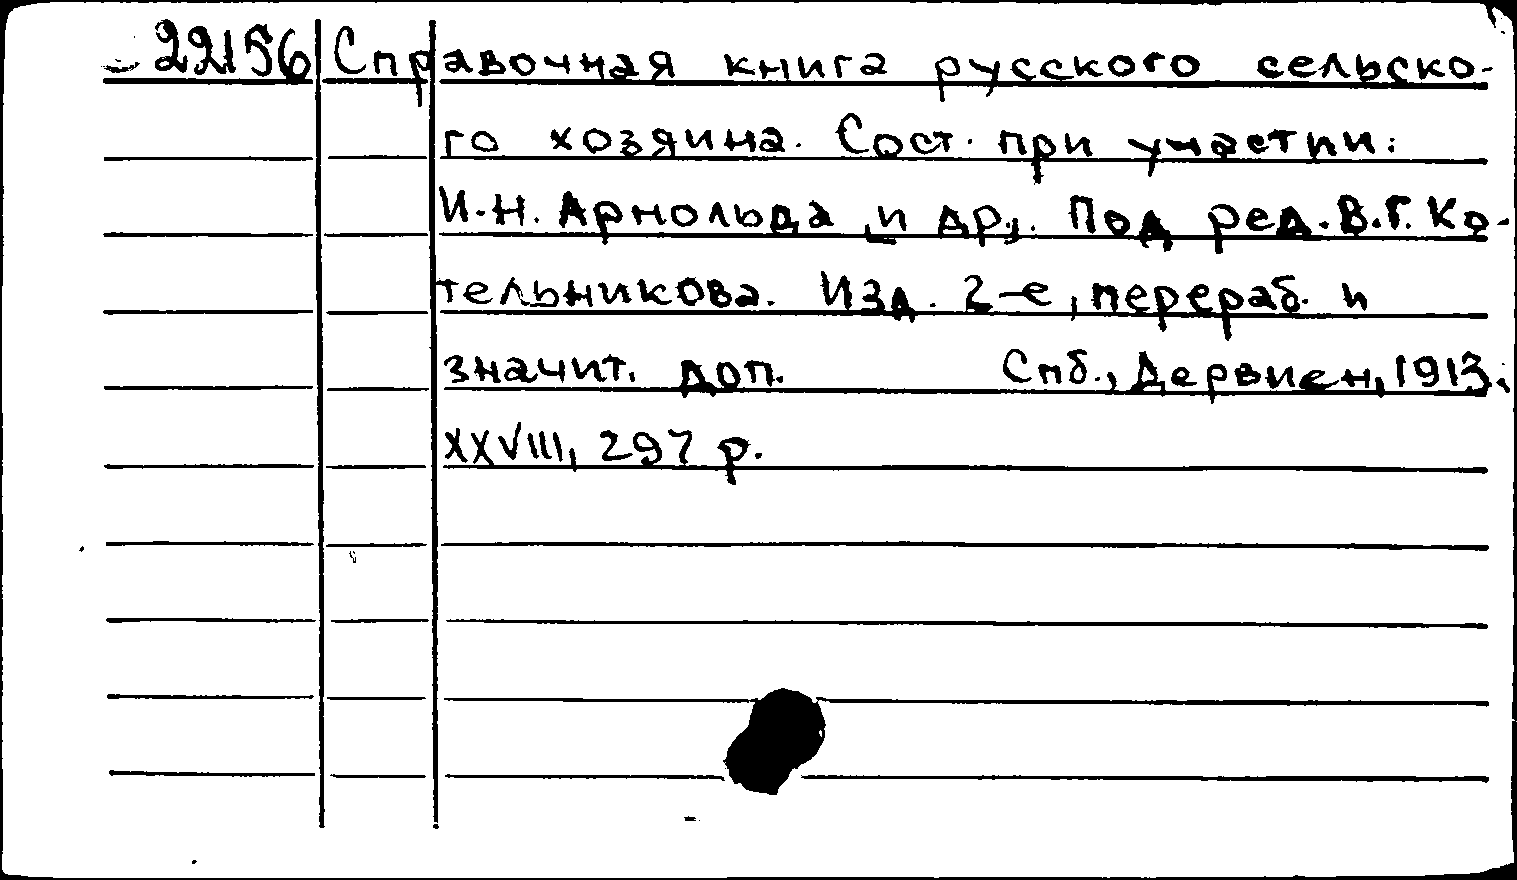 22156 Справочная книга русского сельско-
го хозяина. Сост. при участии:
И.Н. Арнольда [и др]. Под ред. В.Г. Ко-
тельникова. Изд. 2-е, перераб. и
значит. доп. Спб., Девриен, 1913.
XXVIII, 297 р.